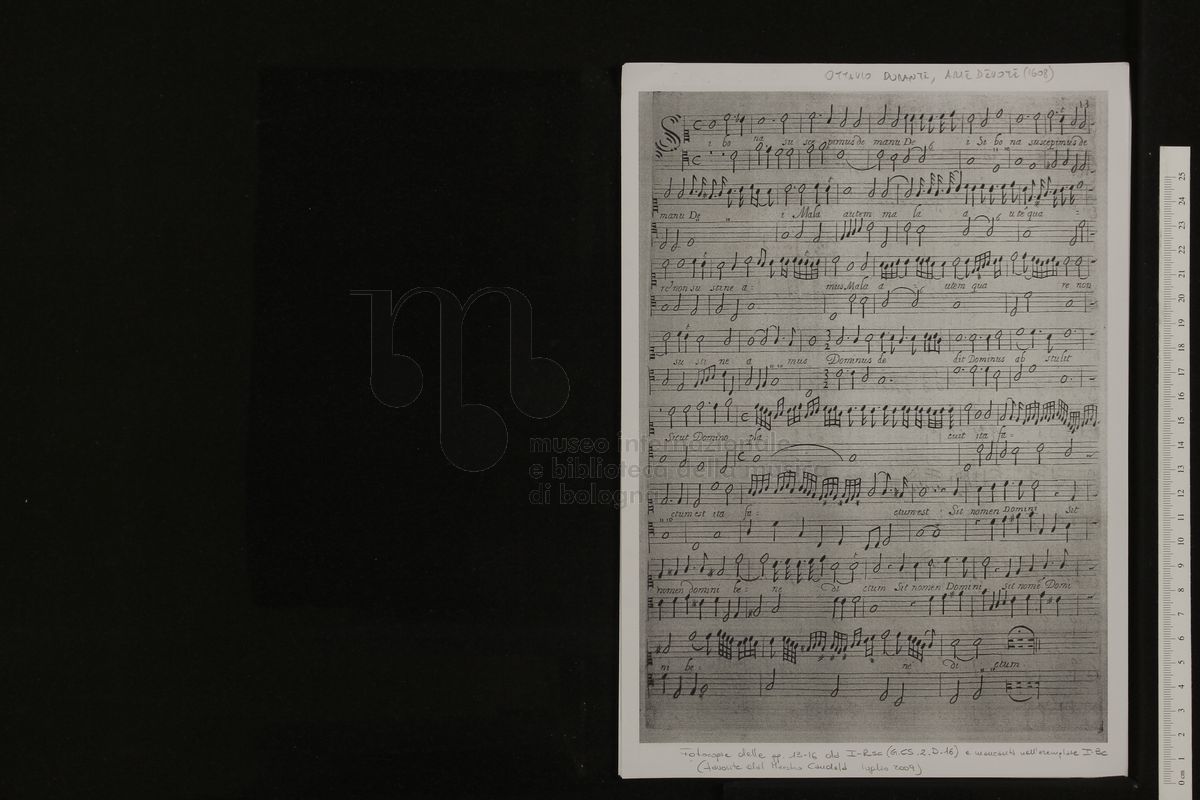 OTTAVIO DURANTE, ARIE DEVOTE (1608)
13
Si bo na su sce pimus de manu De i Si bo na suscepimus de
manu De " i Mala autem ma la a u te qua
re non su stine a: mus Mala a utem qua re non
su sti ne a mus Dominus de dit Dominus ab stulit
Sicut Domino pla cuit ita fa:
ctum est ita fa: ctum est Sit nomen Domini Sit
nomen domini be: ne di ctum Sit nomen Domini sit nome Domi
ni be: ne di ctum
museo internazionale
e biblioteca della musica
di bologna
Fotocopie delle pp. 13-16 da I-Rsc (G.CS.2.D.16) e mancanti nell'esemplare I-Bc
luglio 2009)
25
24
23
22
21
20
19
18
17
16
15
14
13
12
11
10
9
8
7
6
5
4
3
2
1
0 cm